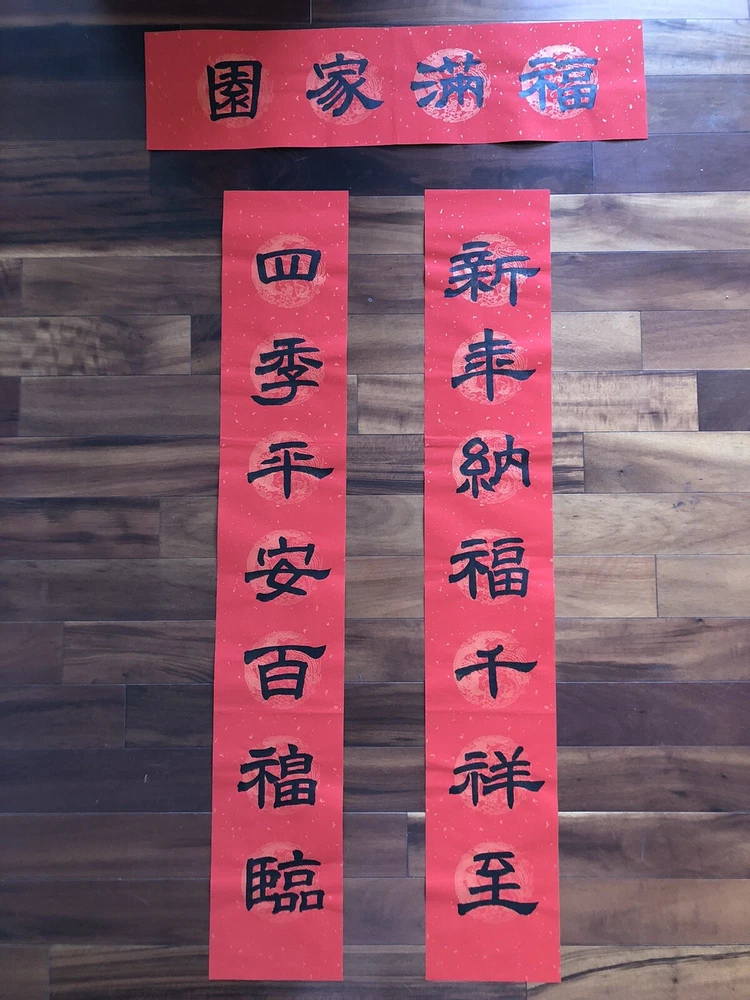 福滿家園
新年納福千祥至
四季平安百福臨